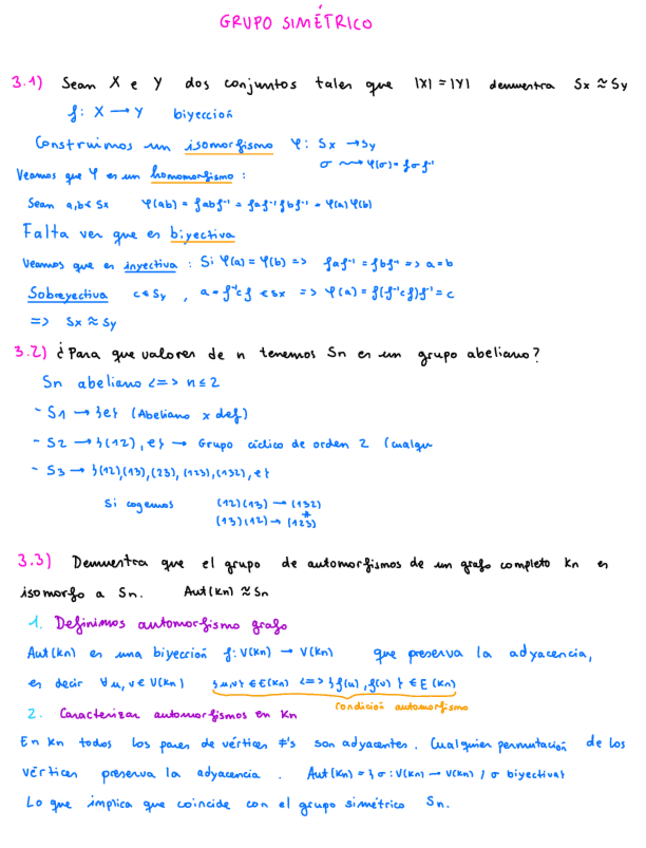 GRUPO SIMÉTRICO
3.1) Sean X e Y dos conjuntos tales que |X| = |Y| demuestra Sx ≈ Sy
f: X → Y biyección
Construimos un isomorfismo φ: Sx → Sy
σ ⇝ φ(σ) = fσf⁻¹
Veamos que φ es un homomorfismo:
Sean a,b ∈ Sx φ(ab) = fabf⁻¹ = faf⁻¹fbf⁻¹ = φ(a)φ(b)
Falta ver que es biyectiva
Veamos que es inyectiva : Si φ(a) = φ(b) => faf⁻¹ = fbf⁻¹ => a = b
Sobreyectiva c ∈ Sy , a = f⁻¹cf ∈ Sx => φ(a) = f(f⁻¹cf)f⁻¹ = c
=> Sx ≈ Sy
3.2) ¿Para que valores de n tenemos Sn es un grupo abeliano?
Sn abeliano <=> n ≤ 2
- S1 → {e} (Abeliano x def)
- S2 → {(12), e} → Grupo cíclico de orden 2 (cualqu
- S3 → {(12),(13),(23),(123),(132), e}
Si cogemos (12)(13) → (132)
≠
(13)(12) → (123)
3.3) Demuestra que el grupo de automorfismos de un grafo completo Kn es
isomorfo a Sn. Aut(Kn) ≈ Sn
1. Definimos automorfismo grafo
Aut(Kn) es una biyección f: V(Kn) → V(Kn) que preserva la adyacencia,
es decir ∀u,v ∈ V(Kn) {u,v} ∈ E(Kn) <=> {f(u), f(v)} ∈ E(Kn)
condición automorfismo
2. Caracterizar automorfismos en Kn
En Kn todos los pares de vértices ≠'s son adyacentes. Cualquier permutación de los
vértices preserva la adyacencia. Aut(Kn) = {σ: V(Kn) → V(Kn) / σ biyectiva}
Lo que implica que coincide con el grupo simétrico Sn.